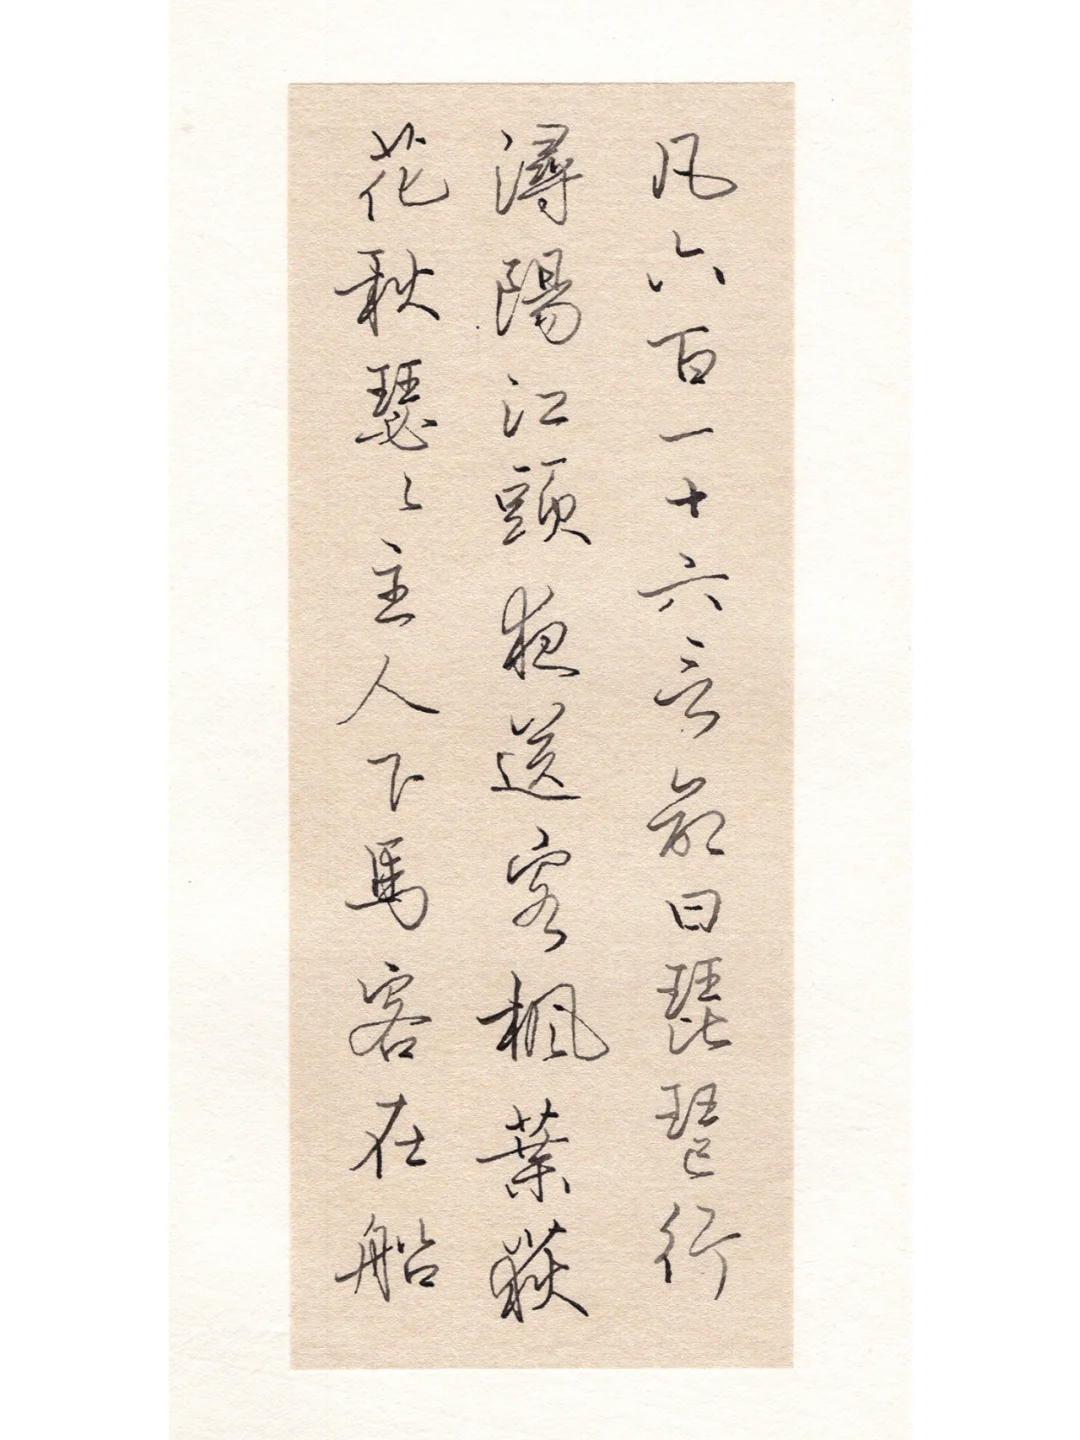 凡六百一十六言命曰琵琶行
潯陽江頭夜送客楓葉荻
花秋瑟々主人下馬客在船